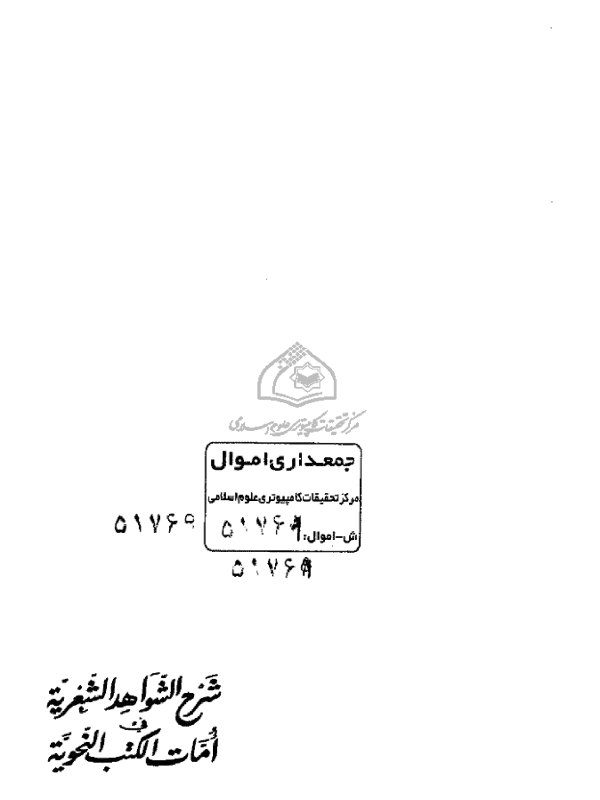 مرکز تحقیقات کامپیوتری علوم اسلامی
جمعداری اموال
مرکز تحقیقات کامپیوتری علوم اسلامی
ش-اموال: ۵۱۷۶۹
۵۱۷۶۹
۵۱۷۶۹
شرح الشواهد الشعرية
في
أمات الكتب النحوية